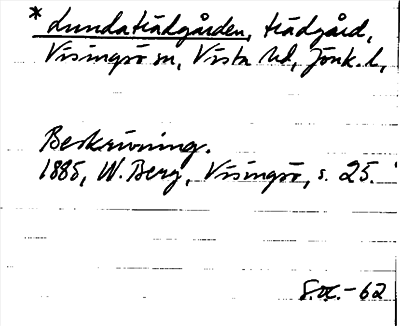 * Lundaträdgården, trädgård,
Visingsö sn, Vista hd, Jönk. l.,
Beskrivning.
1885, W. Berg, Visingsö, s. 25.
-62